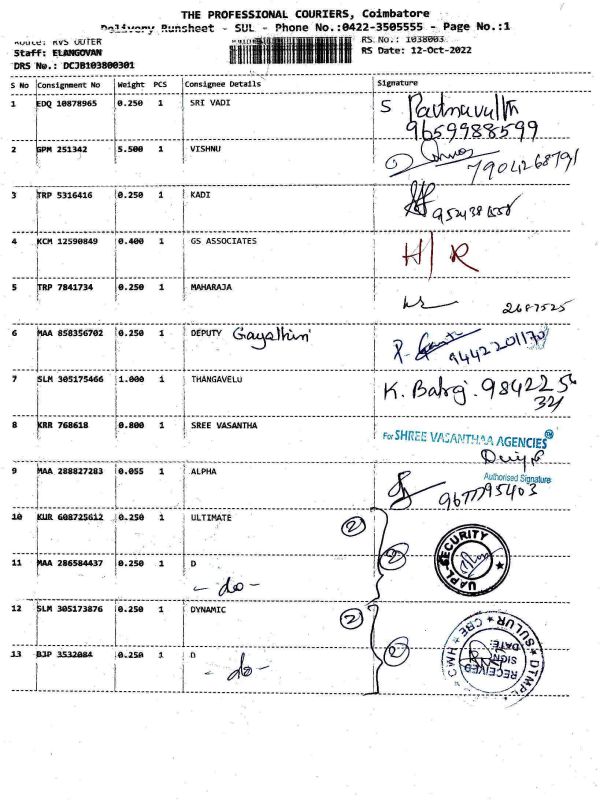 THE PROFESSIONAL COURIERS, Coimbatore
Delivery Runsheet - SUL - Phone No.:0422-3505555 - Page No.:1
Route: RVS OUTER
RS No.: 1038003
Staff: ELANGOVAN
RS Date: 12-Oct-2022
DRS No.: DCJB103800301
S No Consignment No Weight PCS Consignee Details Signature
1 EDQ 10878965 0.250 1 SRI VADI S
9659988599
2 GPM 251342 5.500 1 VISHNU
7904268791
3 TRP 5316416 0.250 1 KADI
4 KCM 12590849 0.400 1 GS ASSOCIATES H/R
5 TRP 7841734 0.250 1 MAHARAJA
2687525
6 MAA 858356702 0.250 1 DEPUTY Gayathiri
9442201170
7 SLM 305175466 1.000 1 THANGAVELU K. Balaji. 9842256
321
8 KRR 768618 0.800 1 SREE VASANTHA
For SHREE VASANTHAA AGENCIES
Authorised Signature
9 MAA 288827283 0.055 1 ALPHA
9677795403
10 KUR 608725612 0.250 1 ULTIMATE 2
UAPL-SECURITY
11 MAA 286584437 0.250 1 D 2
- do -
12 SLM 305173876 0.250 1 DYNAMIC 2
13 BJP 3532084 0.250 1 D 2
- do -
DTMPL * CWH * CBE * SULUR *
DATE:
SIGN:
RECEIVED